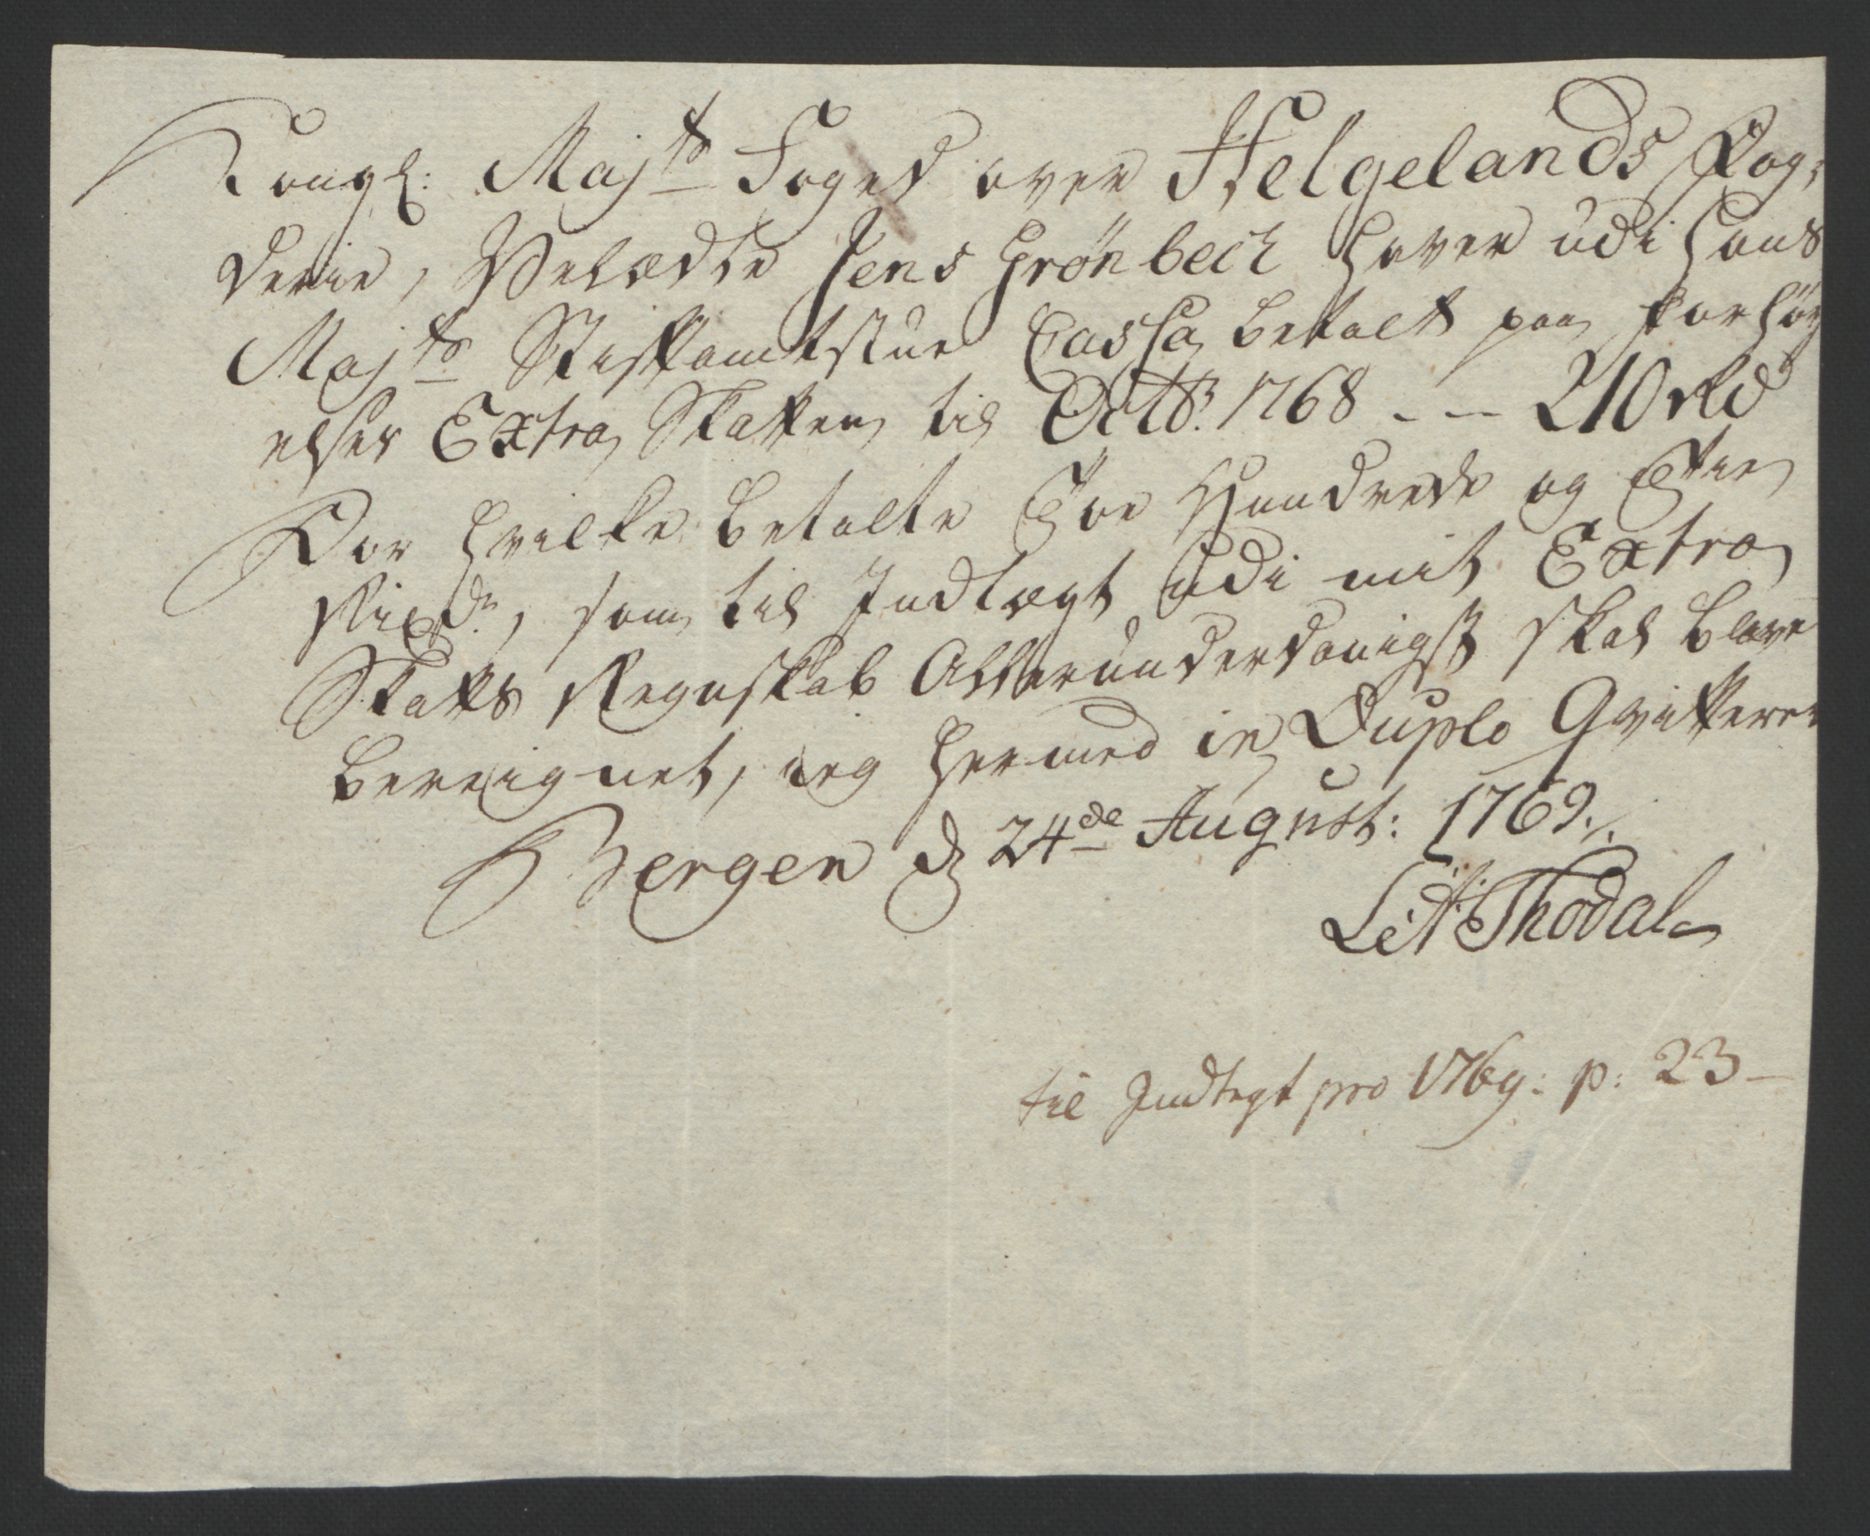 Kongl: Maj:ts Foged over Helgelands Fog,
derie, Velædle Jens Grönbech haver udi Hans
Maj:ts Stiftamtstue Cassa betalt paa forhöy
elser Extra Skatten til Octbr. 1768 - - 210 rd
For hvilke betalte Toe Hundrede og Tie
Rixdr, som til Indtægt udi mit Extra
Skatts Regnskab Allerunderdanigst skal blive
bereignet, ieg hermed in Duplo Qvitterer
Bergen d 24de August: 1769.
L A Thodal
til Indtegt pro 1769: p: 23 -